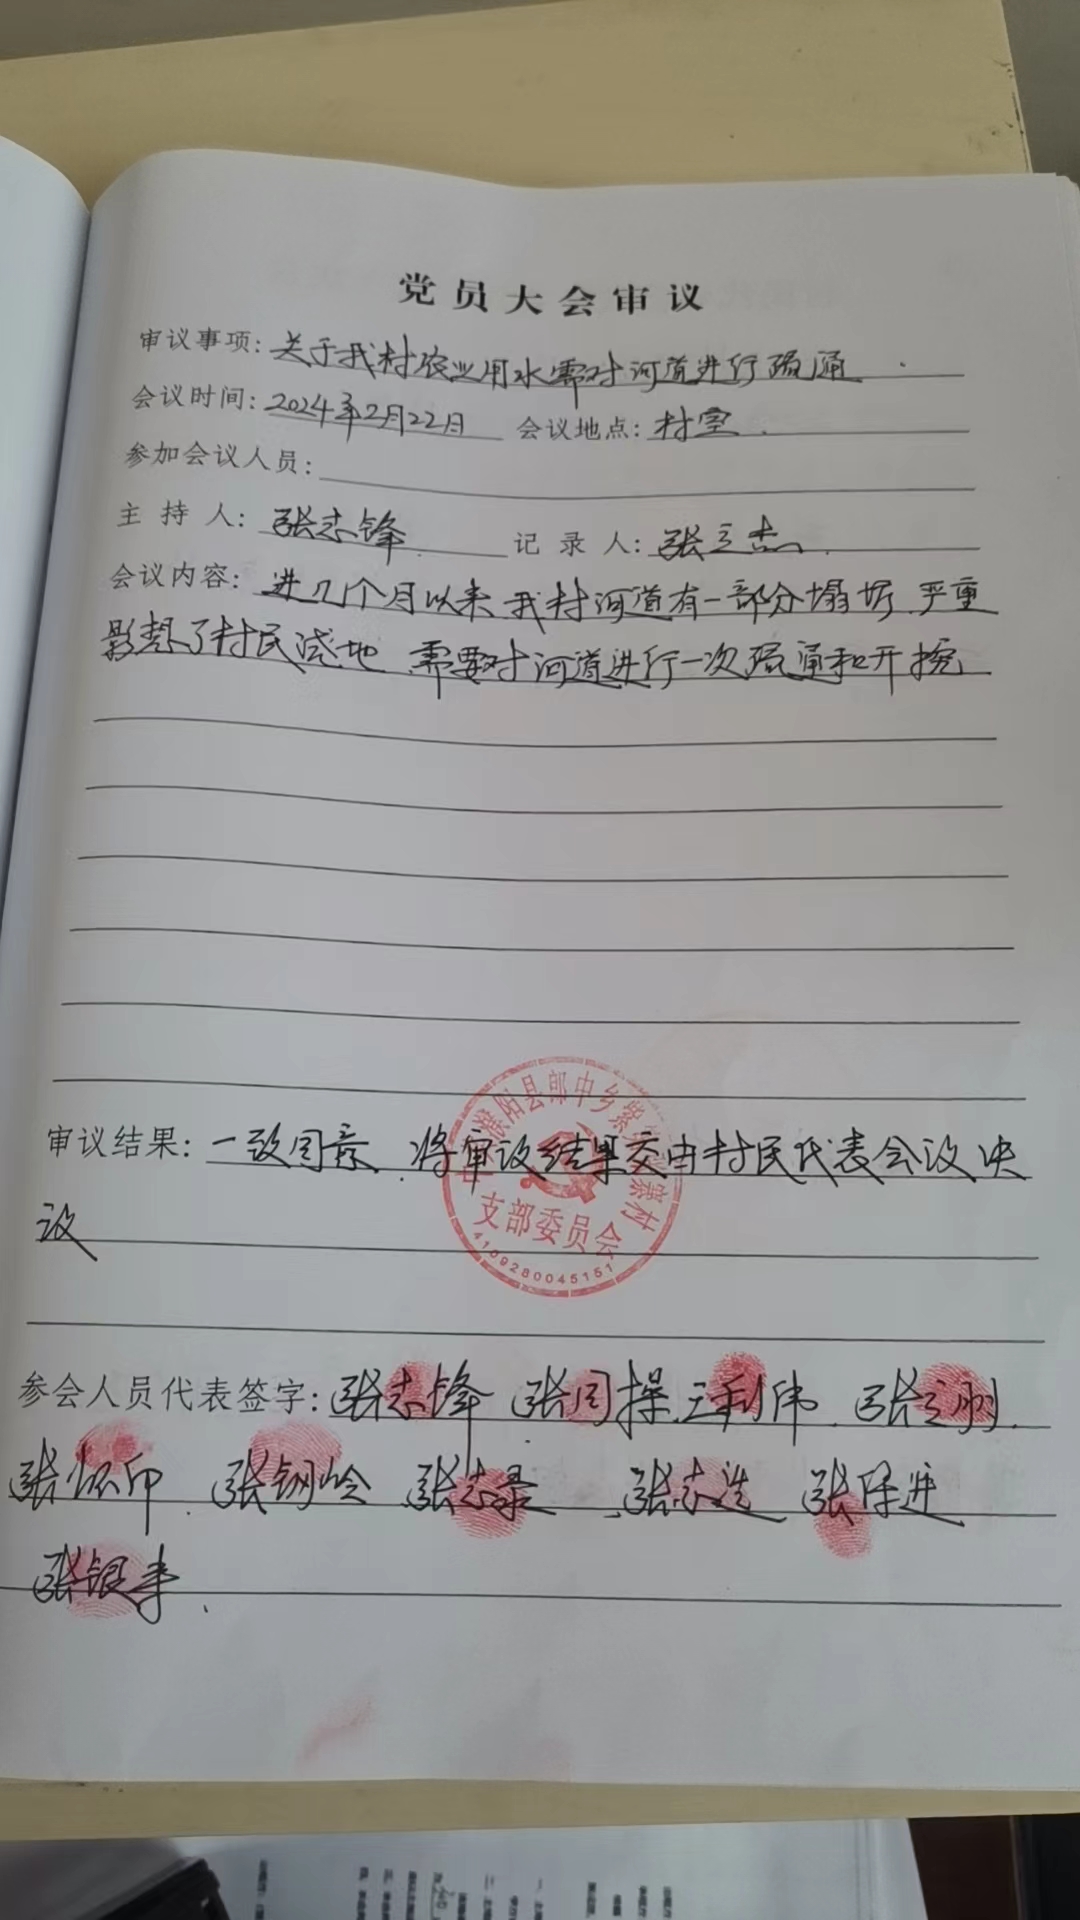 党员大会审议
审议事项: 关于我村农业用水需对河道进行疏通
会议时间: 2024年2月22日 会议地点: 村室
参加会议人员:
主持人: 张志锋 记录人: 张立杰
会议内容: 进几个月以来 我村河道有一部分塌圻 严重
影想了村民浇地 需要对河道进行一次疏通和开挖
审议结果: 一致同意 将审议结果交由村民代表会议决
议
濮阳县郎中乡紫 寨村
支部委员会
4109280045151
参会人员代表签字: 张志锋 张同操 王利伟 张立刚
张怀印 张钢岭 张志录 张志选 张 进
张银